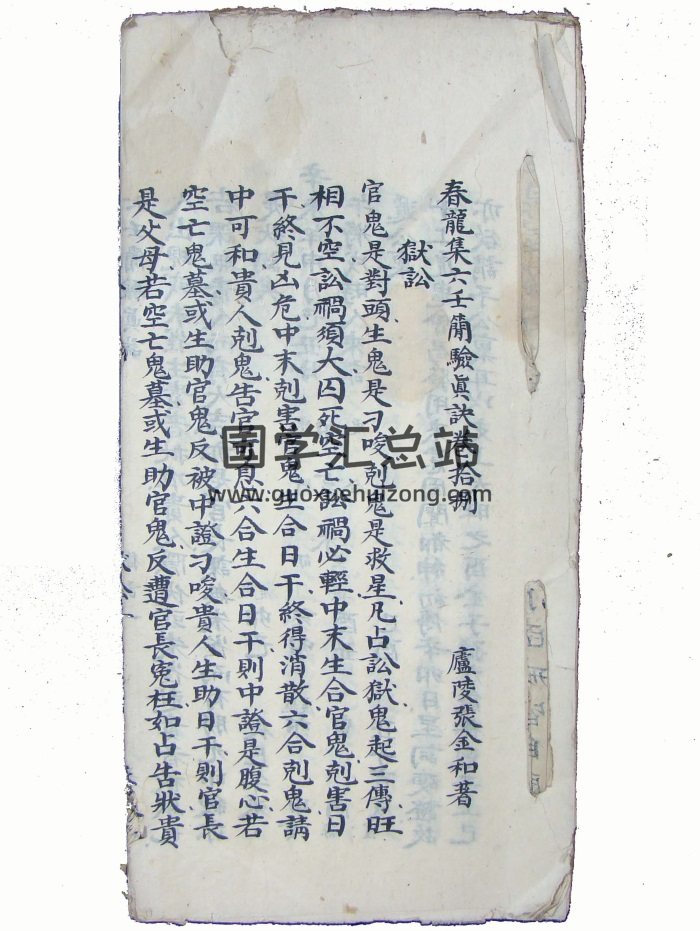 春龍集六壬簡驗眞訣卷拾捌
廬陵張金和著
獄訟
官鬼是對頭生鬼是刁唆剋鬼是救星凡占訟獄鬼起三傳旺
相不空訟禍須大囚死空亡訟禍必輕中末生合官鬼剋害日
干終見凶危中末剋害官鬼生合日干終得消散六合剋鬼請
中可和貴人剋鬼告官可息六合生合日干則中證是腹心若
空亡鬼墓或生助官鬼反被中證刁唆貴人生助日干則官長
是父母若空亡鬼墓或生助官鬼反遭官長寃枉如占告狀貴
国学汇总站
www.guoxuehuizong.com